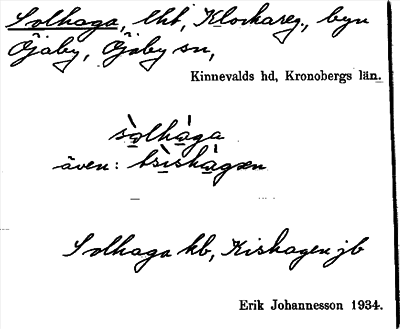 Solhaga, lht, Klockareg., byn
Öjaby, Öjaby sn,
Kinnevalds hd, Kronobergs län.
sòlhàga
även: tsìshàgæn
Solhaga kb, Kishagen jb
Erik Johannesson 1934.